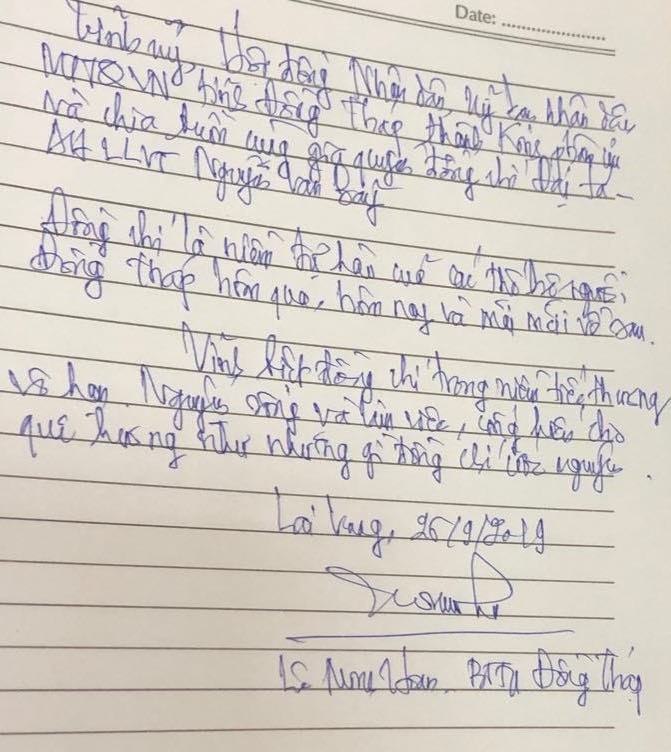 Date: ....................
Tỉnh uỷ, Hội đồng Nhân dân, Uỷ ban nhân dân
MTTQVN tỉnh Đồng Tháp thành kính phân ưu
và chia buồn cùng gia quyến đồng chí Đại tá -
AHLLVT Nguyễn Văn Bảy
Đồng chí là niềm tự hào của các thế hệ người
Đồng Tháp hôm qua, hôm nay và mãi mãi về sau.
Vĩnh biệt đồng chí trong niềm tiếc thương
vô hạn. Nguyện sống và làm việc, cống hiến cho
quê hương như những gì đồng chí ước nguyện.
Lai Vung, 26/9/2019
Lê Minh Hoan. BTTU Đồng Tháp